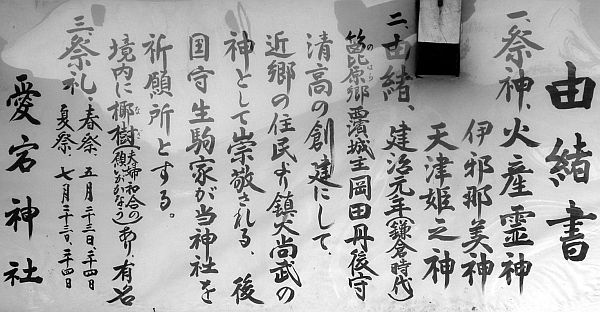 由緒書
一、祭神、火産霊神
伊邪那美神
天津姫之神
二、由緒、建治元年(鎌倉時代)
箆原郷西濱城主岡田丹後守
清高の創建にして、
近郷の住民より鎮火尚武の
神として崇敬される、後
国守生駒家が当神社を
祈願所とする。
境内に椰樹(夫婦和合の願いがかなう)あり、有名
三、祭礼、春祭、五月二十三日、二十四日
夏祭、七月二十三日、二十四日
愛宕神社